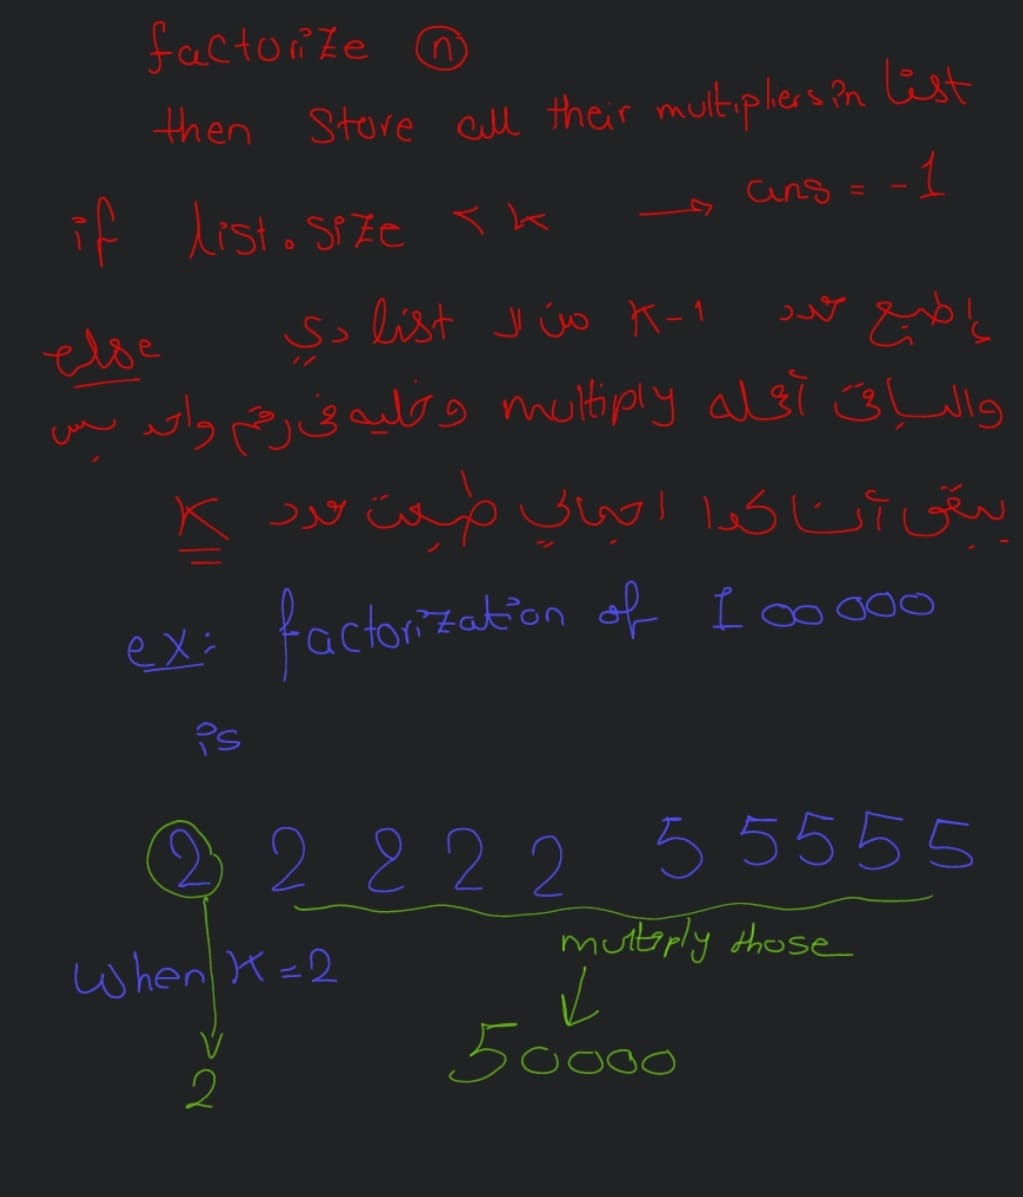 factorize n
then store all their multipliers in list
if list.size < k → ans = -1
else إطبع عدد K-1 من ال list دي
والباقي multiply وخليه في رقم واحد بس
يبقى أنا كدا اجمالي طبعت عدد K
ex: factorization of 100000
is
2 2 2 2 2 5 5 5 5 5
multiply those
When K=2
50000
2